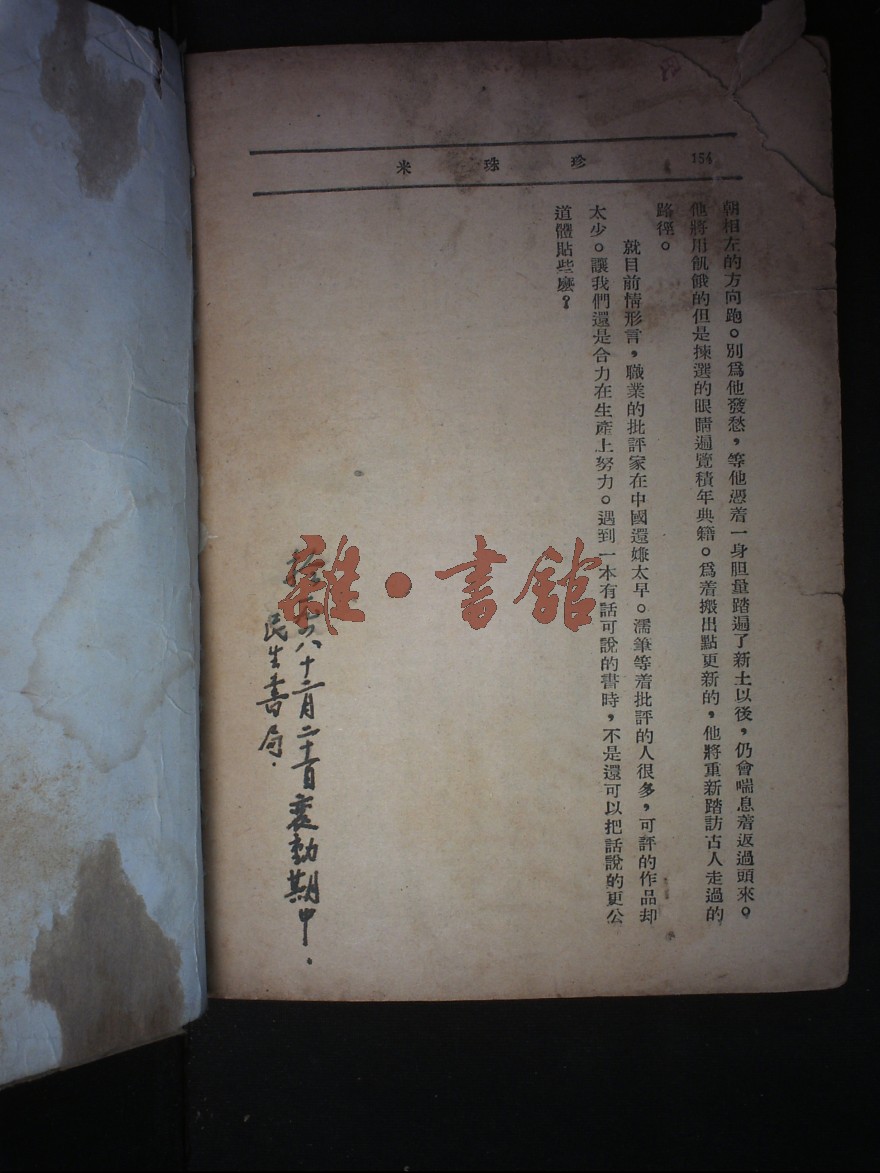 164
珍珠米
朝相左的方向跑。別爲他發愁，等他憑着一身胆量踏遍了新土以後，仍會喘息着返過頭來。
他將用飢餓的但是揀選的眼睛遍覽積年典籍。爲着搬出點更新的，他將重新踏訪古人走過的
路徑。
就目前情形言，職業的批評家在中國還嫌太早。濡筆等着批評的人很多，可評的作品却
太少。讓我們還是合力在生產上努力。遇到一本有話可說的書時，不是還可以把話說的更公
道體貼些麽？
八十二月二十
期中．
民生書局．
雜·書館